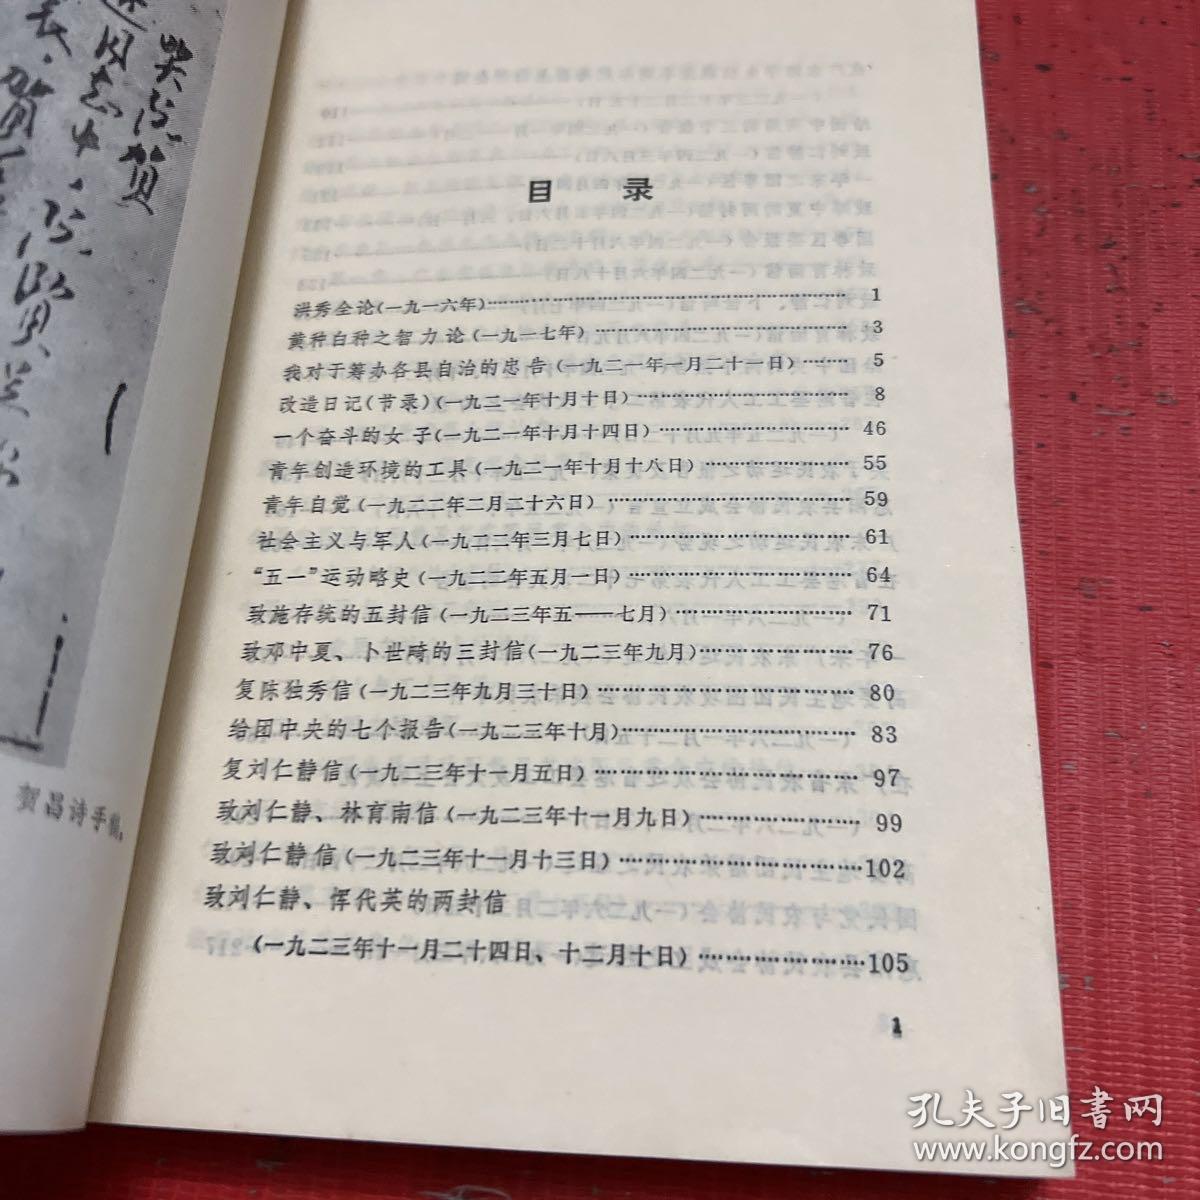 目录
洪秀全论(一九一六年)……………………………………1
黄种白种之智力论(一九一七年)……………………………3
我对于筹办各县自治的忠告(一九二一年一月二十一日)……5
改造日记(节录)(一九二一年十月十日)……………………8
一个奋斗的女子(一九二一年十月十四日)…………………46
青年创造环境的工具(一九二一年十月十八日)……………55
青年自觉(一九二二年二月二十六日)………………………59
社会主义与军人(一九二二年三月七日)……………………61
“五一”运动略史(一九二二年五月一日)……………………64
致施存统的五封信(一九二三年五——七月)………………71
致邓中夏、卜世畸的三封信(一九二三年九月)……………76
复陈独秀信(一九二三年九月三十日)………………………80
给团中央的七个报告(一九二三年十月)……………………83
复刘仁静信(一九二三年十一月五日)………………………97
致刘仁静、林育南信(一九二三年十一月九日)……………99
致刘仁静信(一九二三年十一月十三日)……………………102
致刘仁静、恽代英的两封信
(一九二三年十一月二十四日、十二月十日)………………105
1
贺昌诗手稿。
孔夫子旧书网
www.kongfz.com